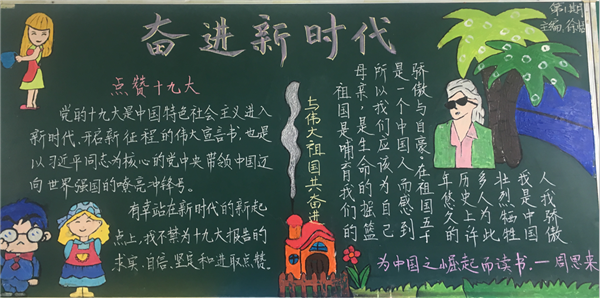 奋进新时代
第1期
主编:
点赞十九大
党的十九大是中国特色社会主义进入
新时代、开启新征程的伟大宣言书,也是
以习近平同志为核心的党中央带领中国迈
向世界强国的嘹亮冲锋号。
有幸站在新时代的新起
点上,我不禁为十九大报告的
求实、自信、坚定和进取点赞。
与伟大祖国共奋进
祖国是哺育我们的
母亲,是生命的摇篮
所以我们应该为自己
是一个中国人而感到
骄傲与自豪。在祖国五千
年悠久的
历史上许
多人为此
壮烈牺牲
我是中国
人,我骄傲
为中国之崛起而读书.——周恩来